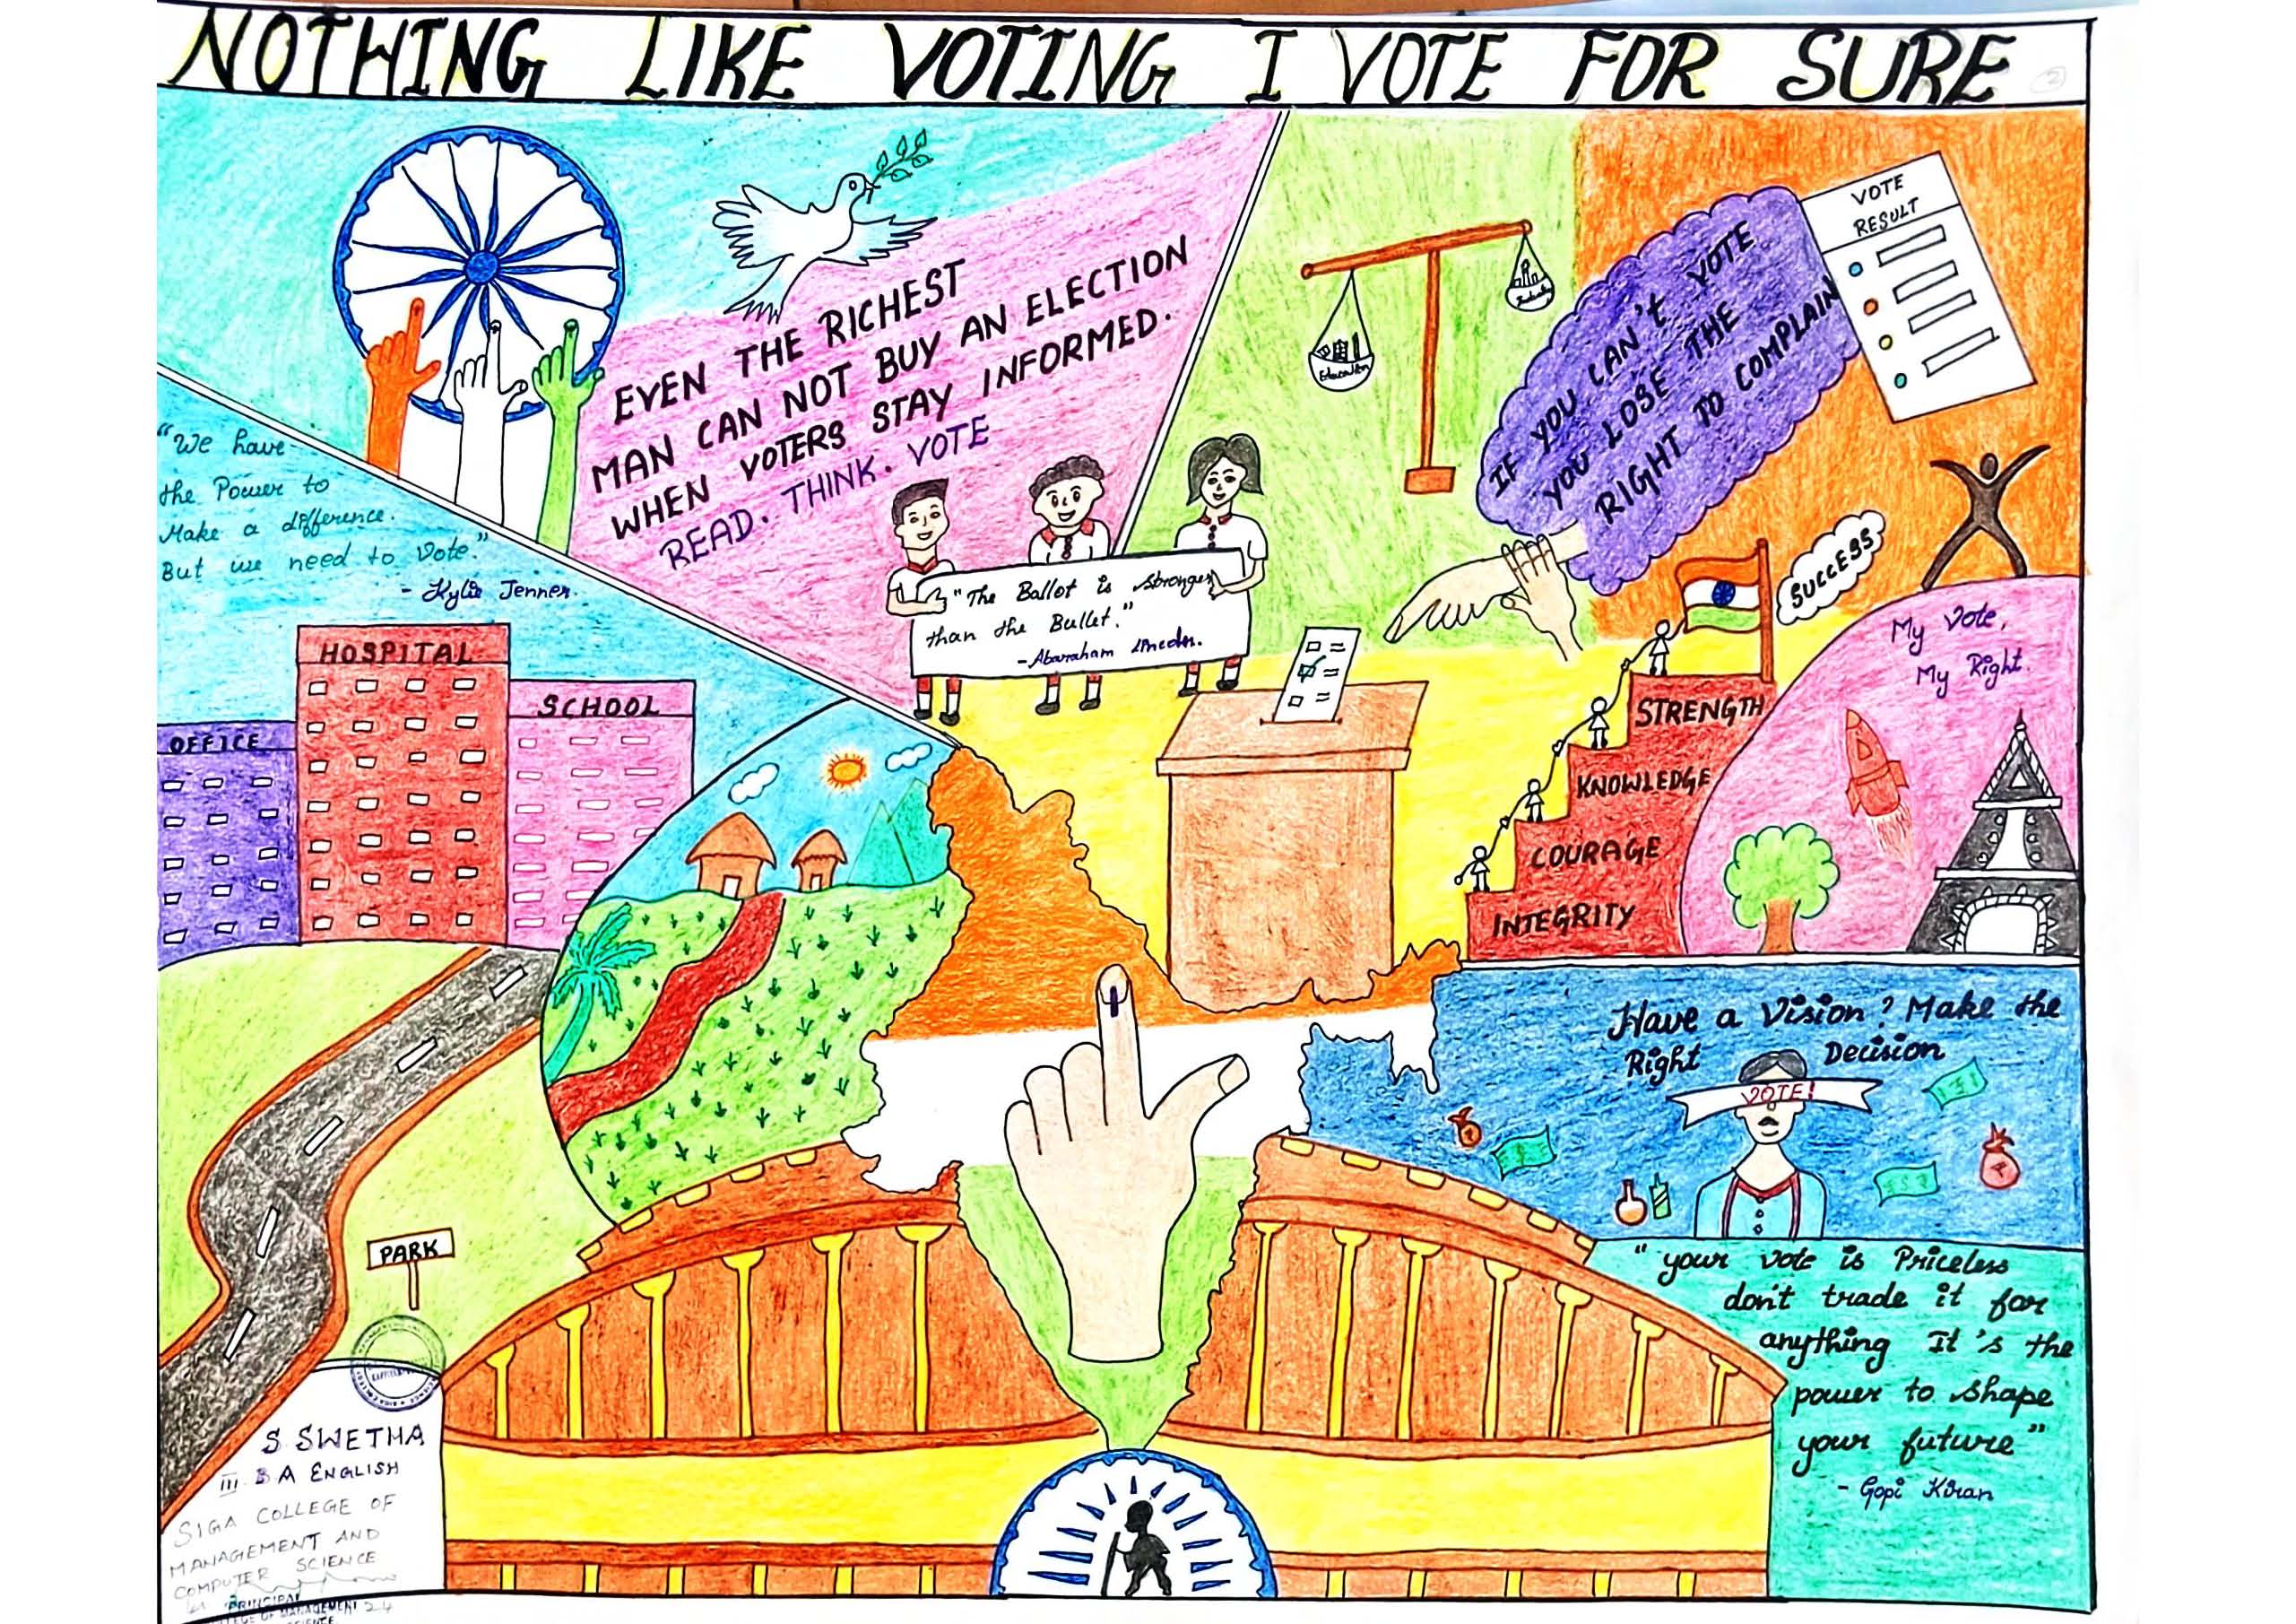 NOTHING LIKE VOTING I VOTE FOR SURE
2
EVEN THE RICHEST
MAN CAN NOT BUY AN ELECTION
WHEN VOTERS STAY INFORMED.
READ. THINK. VOTE
"We have
the Power to
Make a difference.
But we need to Vote."
- Kylie Jenner.
Education
IF YOU CAN't VOTE
YOU LOSE THE
RIGHT TO COMPLAIN
VOTE
RESULT
"The Ballot is stronger
than the Bullet."
- Abaraham Lincoln.
SUCCESS
My Vote,
My Right.
STRENGTH
KNOWLEDGE
COURAGE
INTEGRITY
HOSPITAL
SCHOOL
OFFICE
Have a Vision? Make the
Right Decision
VOTE!
"your vote is Priceless
don't trade it for
anything It's the
power to shape
your future"
- Gopi Kiran
PARK
S. SWETHA
III. B A ENGLISH
SIGA COLLEGE OF
MANAGEMENT AND
COMPUTER SCIENCE
PRINCIPAL